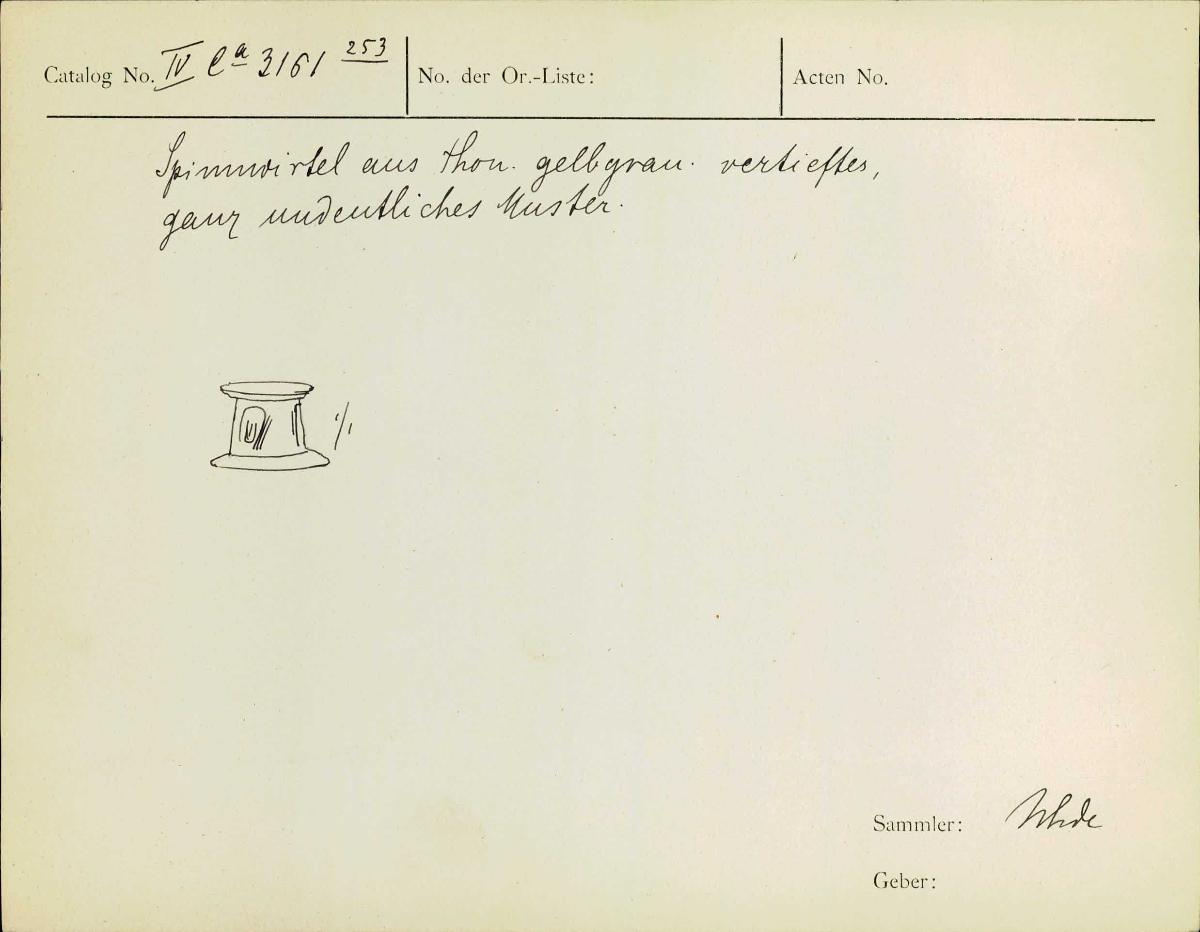 Catalog No. IV Ca 3161 253
No. der Or.-Liste:
Acten No.
Spinnwirtel aus Thon. gelbgrau. vertieftes,
ganz undeutliches Muster.
1/1
Sammler: Uhde
Geber: